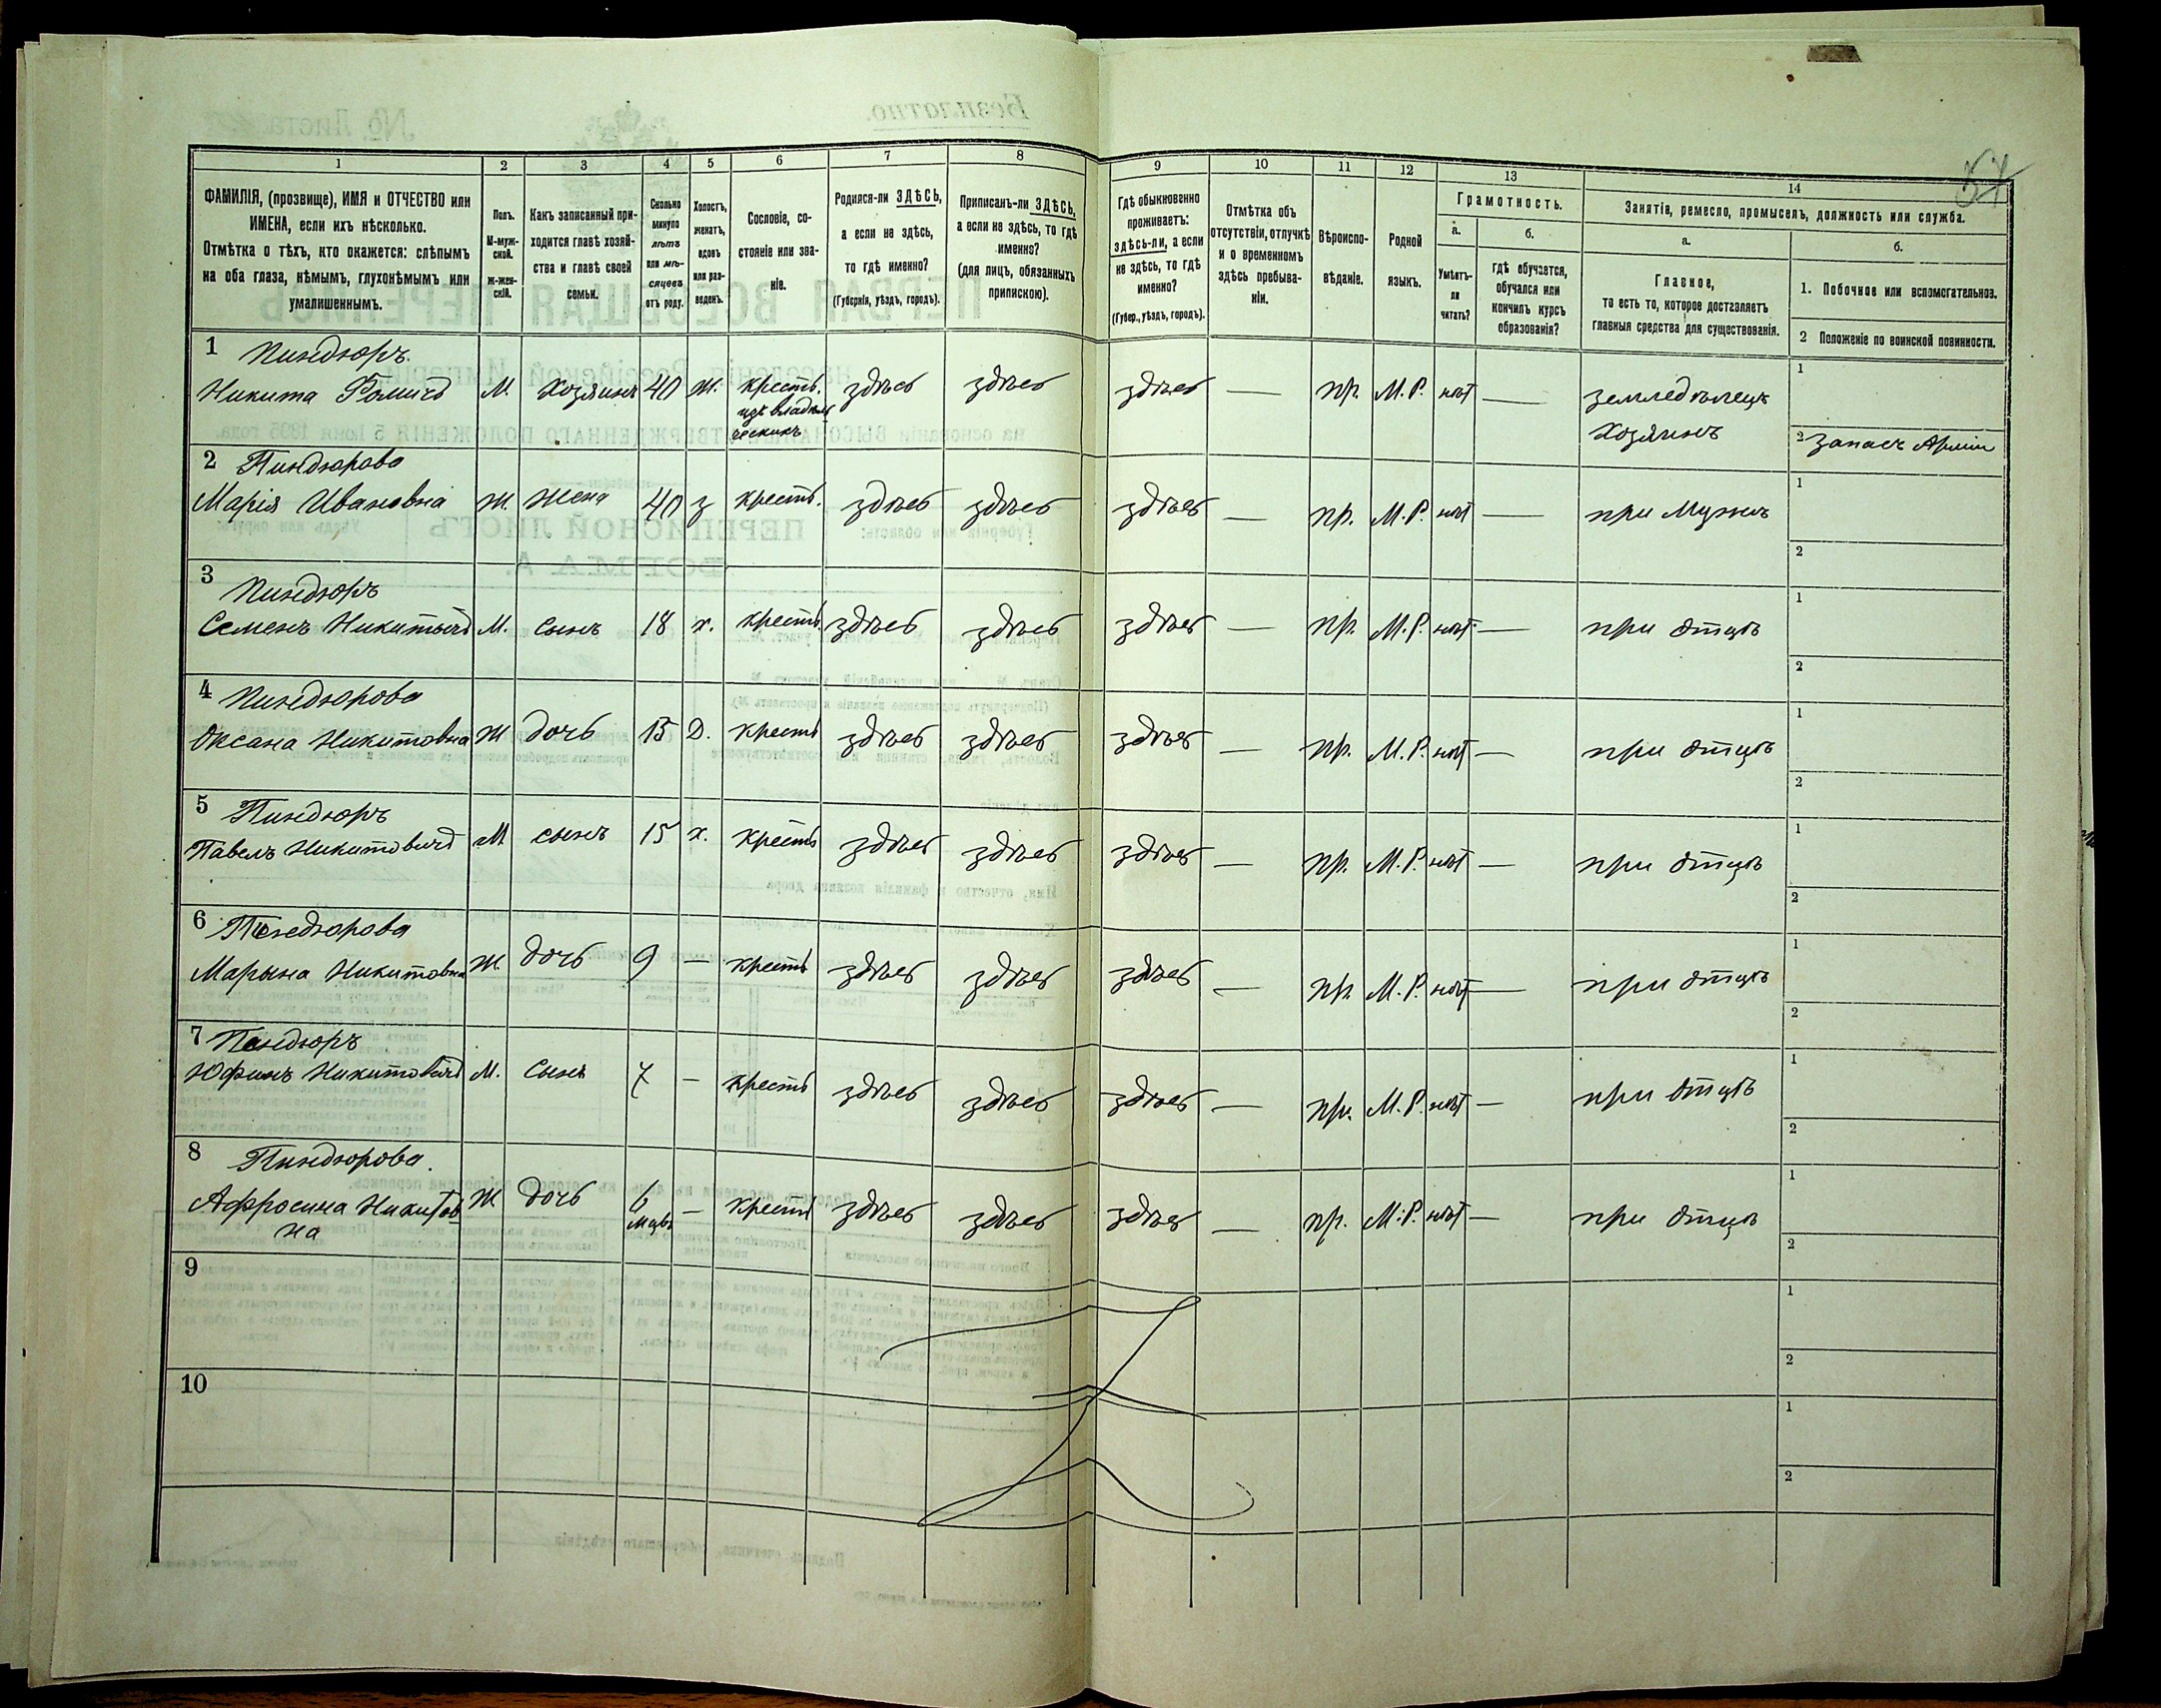 57
1 2 3 4 5 6 7 8 9 10 11 12 13 14
ФАМИЛІЯ, (прозвище), ИМЯ и ОТЧЕСТВО или ИМЕНА, если ихъ нѣсколько.
Отмѣтка о тѣхъ, кто окажется: слѣпымъ на оба глаза, нѣмымъ, глухонѣмымъ или умалишеннымъ.
Полъ. М-мужской. Ж-женскій.
Какъ записанный приходится главѣ хозяйства и главѣ своей семьи.
Сколько минуло лѣтъ или мѣсяцевъ отъ роду.
Холостъ, женатъ, вдовъ или разведенъ.
Сословіе, состояніе или званіе.
Родился-ли ЗДѢСЬ, а если не здѣсь, то гдѣ именно? (Губернія, уѣздъ, городъ).
Приписанъ-ли ЗДѢСЬ, а если не здѣсь, то гдѣ именно? (для лицъ, обязанныхъ припискою).
Гдѣ обыкновенно проживаетъ: здѣсь-ли, а если не здѣсь, то гдѣ именно? (Губер., уѣздъ, городъ).
Отмѣтка объ отсутствіи, отлучкѣ и о временномъ здѣсь пребываніи.
Вѣроисповѣданіе.
Родной языкъ.
Грамотность.
а. Умѣетъ-ли читать?
б. гдѣ обучается, обучался или кончилъ курсъ образованія?
Занятіе, ремесло, промыселъ, должность или служба.
а. Главное, то есть то, которое доставляетъ главныя средства для существованія.
б. 1. Побочное или вспомогательное.
2 Положеніе по воинской повинности.
1 Пиндюръ.
Никита Фомичъ М. Хозяинъ 40 Ж. крестъ. здѣсь здѣсь здѣсь — пр. М.Р. нѣт — земледѣлецъ 1
изъ владѣль
ческихъ
Хозяинъ 2 Запасъ Арміи
2 Пиндюрова
Марія Ивановна Ж. Жена 40 з крестъ. здѣсь здѣсь здѣсь — пр. М.Р. нѣт — при Мужѣ 1
2
3 Пиндюръ
Семенъ Никитичъ М. Сынъ 18 х. крестъ. здѣсь здѣсь здѣсь — пр. М.Р. нѣт — при отцѣ 1
2
4 Пиндюрова
Оксана Никитовна Ж дочь 15 Д. крестъ здѣсь здѣсь здѣсь — пр. М.Р. нѣт — при отцѣ 1
2
5 Пиндюръ
Павелъ Никитовичъ М сынъ 15 х. крестъ здѣсь здѣсь здѣсь — пр. М.Р. нѣт — при отцѣ 1
2
6 Пиндюрова
Марына Никитовна Ж. дочь 9 — крестъ здѣсь здѣсь здѣсь — пр. М.Р. нѣт — при отцѣ 1
2
7 Пиндюръ
Юфимъ Никитовичъ М. Сынъ 7 — крестъ здѣсь здѣсь здѣсь — пр. М.Р. нѣт — при отцѣ 1
2
8 Пиндюрова.
Афросина Никитов Ж дочь 6 — крестъ здѣсь здѣсь здѣсь — пр. М.Р. нѣт — при отцѣ 1
на мцвъ
2
9 1
2
10 1
2